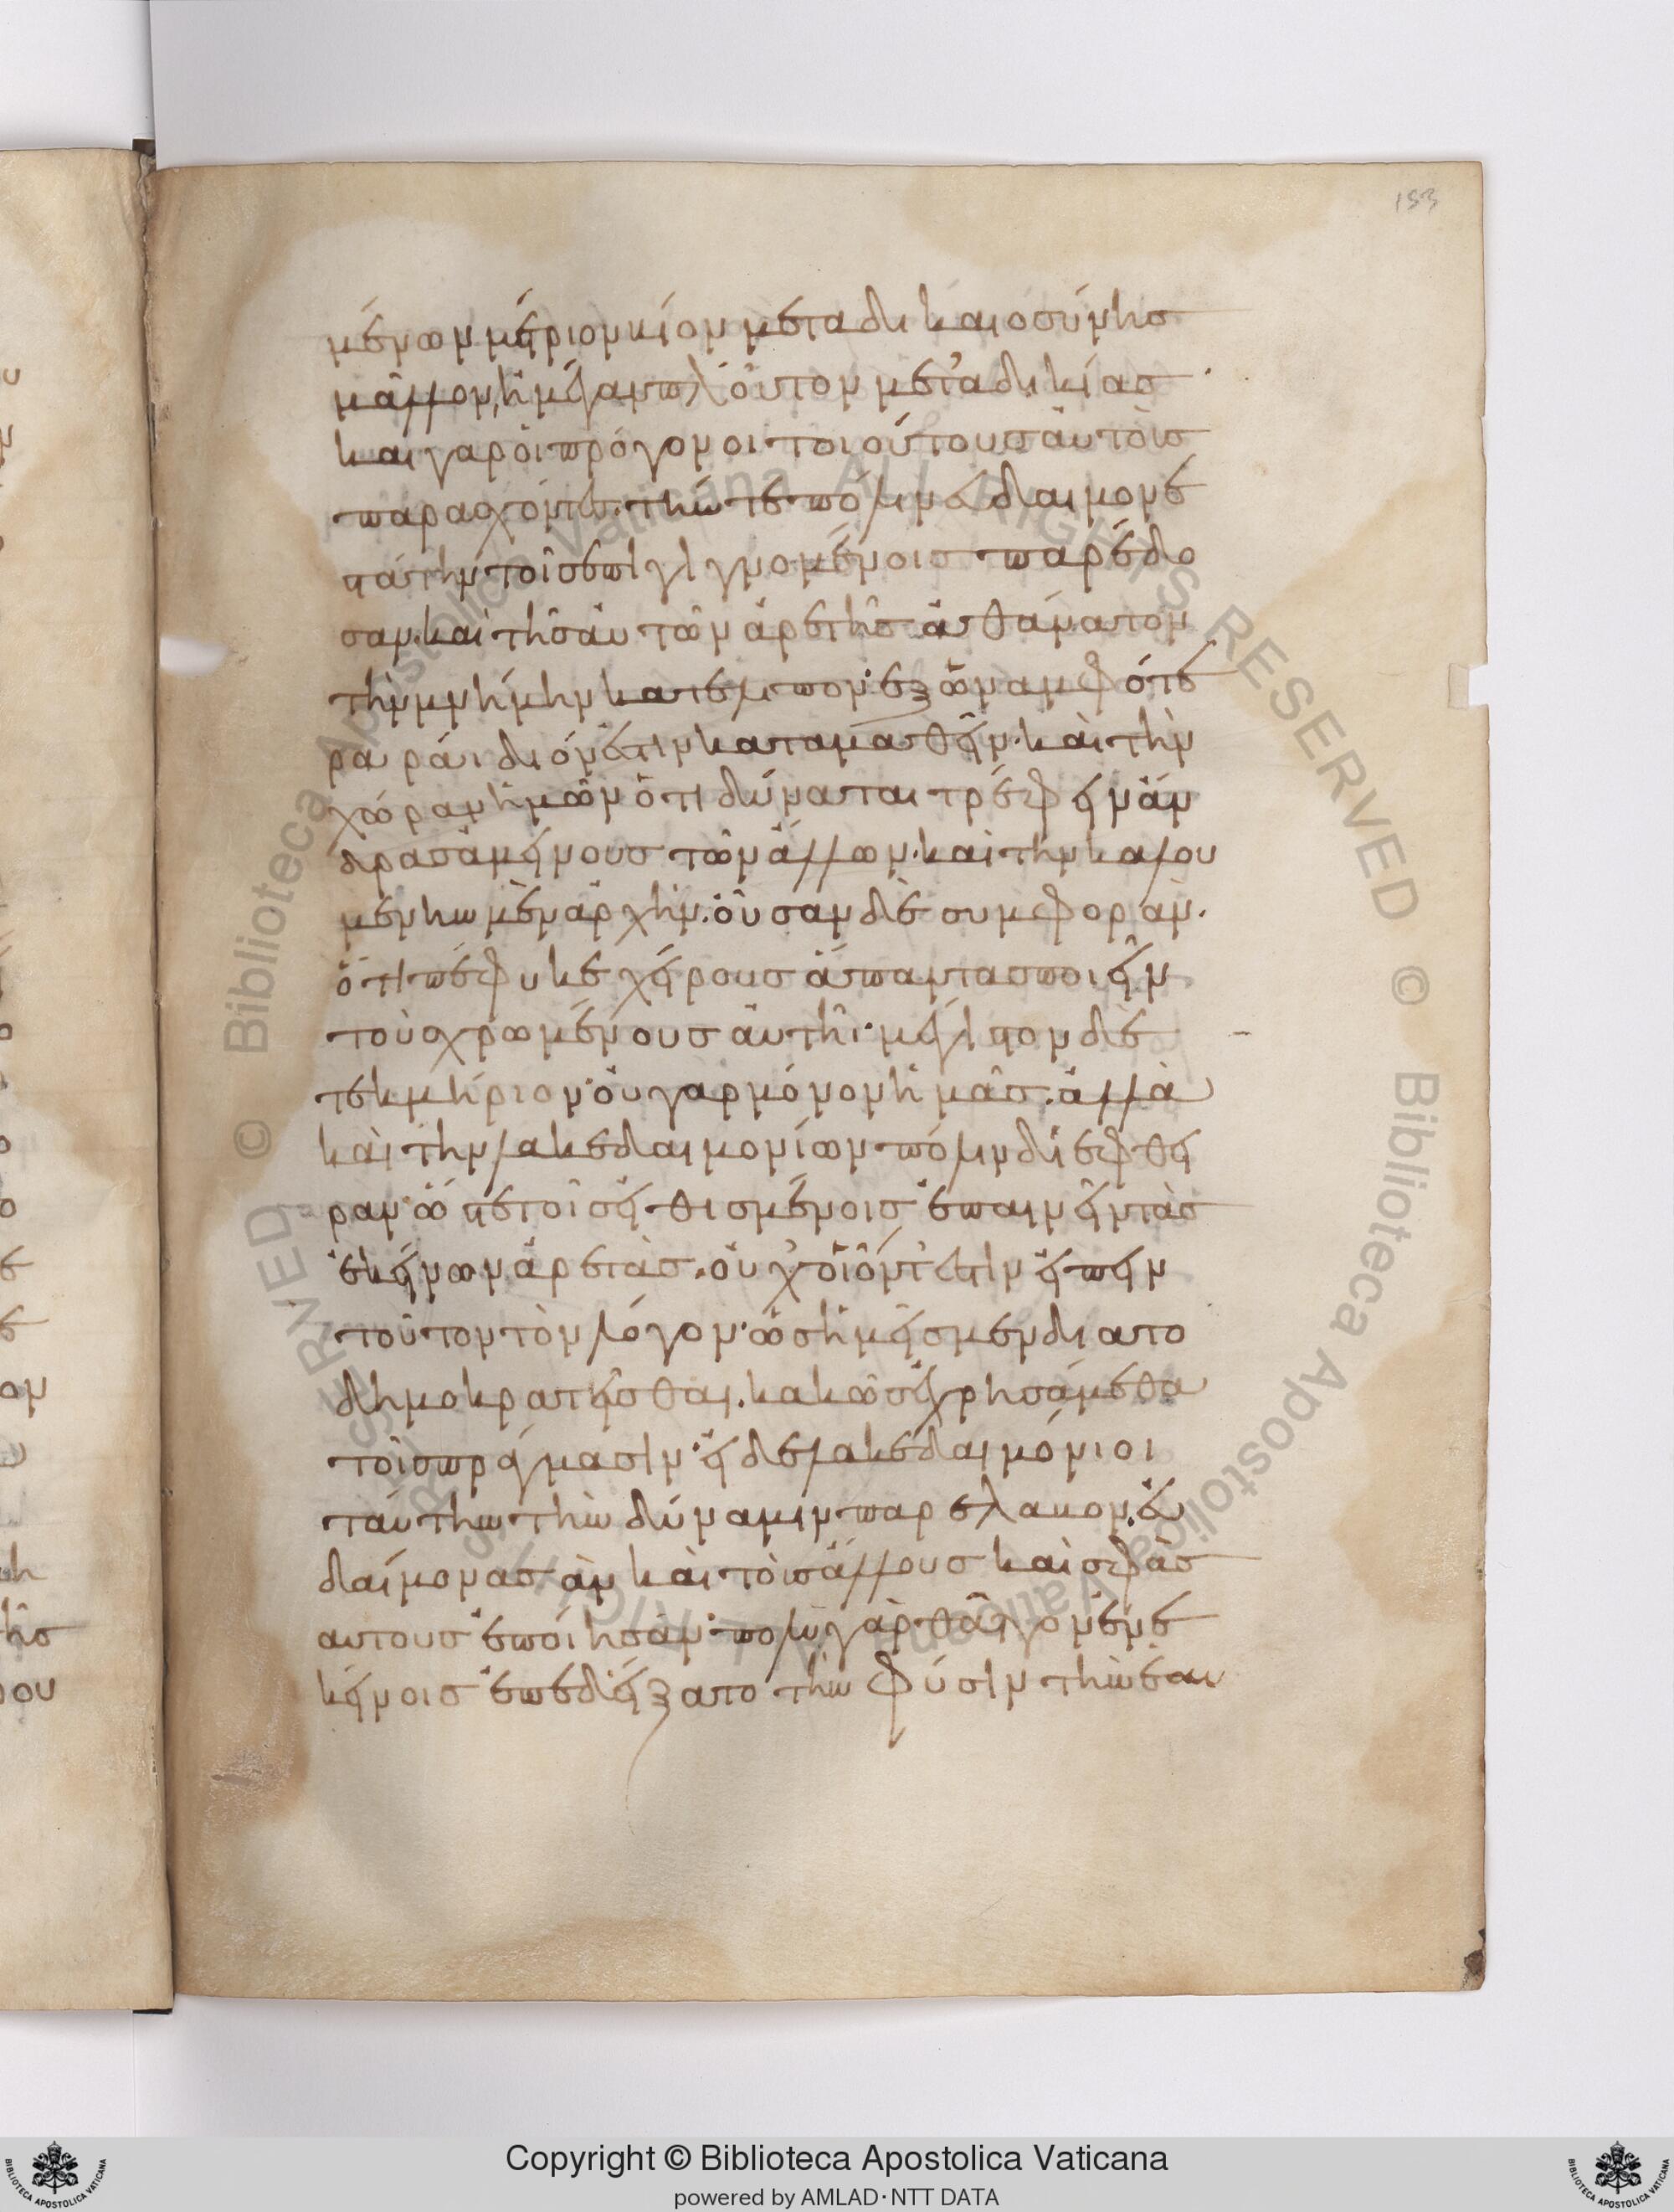 153
μένων μέριον κίον μετα δικαιοσύνησ
μᾶλλον, ἢ μέγαν πλοῦτον μετ᾽ ἀδικίασ.
και γαρ ὁι πρόγονοι τοιούτουσ ἁυτοὺσ
παρασχόντεσ. τήν τε πόλιν ἐυδαιμονε
στάτην τοῖσ ἐπιγιγνομένοισ παρέδο
σαν. καὶ τῆσ ἁυτῶν ἀρετῆσ ἀθάνατον
τὴν μνήμην κατέλιπον· ἐξ ὧν ἀμφότε
ρα ράιδιόν ἐστιν καταμαθεῖν. καὶ τὴν
χώραν ἡμῶν ὅτι δύναται τρέφειν ἄν
δρασ ἀμείνουσ τῶν ἄλλων. καὶ τὴν καλου
μένην μὲν ἀρχὴν. ὀῦσαν δὲ συμφοράν.
ὅτι πέφυκε χείρουσ ἅπαντασ ποιεῖν
τοὺσ χρωμένουσ ἀυτῆι· μέγιστον δὲ
τεκμήριον· ὀυ γαρ μόνον ἡμᾶσ. ἀλλὰ
κὰι τὴν λακεδαιμονίων πόλιν διέφθει
ραν· ὥστε τοῖσ ἐιθισμένοισ ἐπαινεῖν τὰσ
ἐκείνων ἀρετὰσ. ὀυχ᾽ ὁῖόντ᾽ ἐστὶν ἐιπεῖν
τοῦτον τὸν λόγον· ὡσ ἡμεῖσ μεν δια το
δημοκρατεῖσθαι. κακῶσ ἐχρησάμεθα
τοῖσ πράγμασιν· ἐι δε λακεδαιμόνιοι
ταύτην τὴν δύναμιν παρέλαβον. ἐυ
δαίμονασ ἂν κὰι τοὺσ ἄλλουσ καὶ σφᾶσ
αυτουσ ἐποίησαν· πολὺ γὰρ θᾶττον ἐν ἐ
κείνοισ ἐπεδείξατο τὴν φύσιν τὴν ἑαυ
Copyright © Biblioteca Apostolica Vaticana
powered by AMLAD·NTT DATA